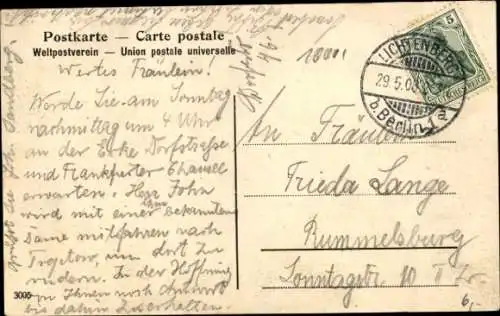 Postkarte — Carte postale
Weltpostverein — Union postale universelle
Wertes Fräulein!
Werde Sie am Sonntag
nachmittag um 4 Uhr
an der Ecke Dorfstrasse
und Frankfurter Chaussee
erwarten. Herr John
wird mit einer ihm bekannten
Dame mitfahren nach
Treptow, um dort zu
rudern. In der Hoffnung
von Ihnen noch Antwort
bis dahin zu erhalten.
grüßt Sie Joh.
LICHTENBERG
29.5.08
b. Berlin 1 a
5
DEUTSCHES REICH
An Fräulein
Frieda Lange
Rummelsburg
Sonntagstr. 10 II Tr.
3005
6,-